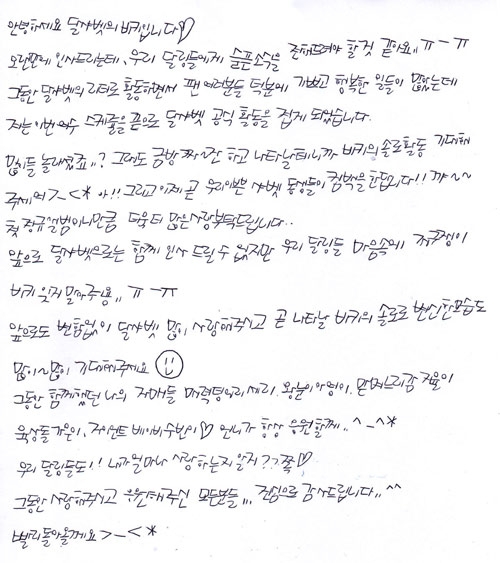 안녕하세요 달샤벳의 비키입니다♡
오랜만에 인사드리는데, 우리 달링들에게 슬픈소식을 전해드려야 할것 같아요,, ㅠ-ㅠ
그동안 달샤벳의 리더로 활동하면서 팬 여러분들 덕분에 기쁘고 행복한 일들이 많았는데
저는 이번 여수 스케줄을 끝으로 달샤벳 공식 활동을 접게 되었습니다.
많이들 놀라셨죠,,? 그래도 금방 짜~잔 하고 나타날테니까 비키의 솔로활동 기대해
주세여 >_<* 아!! 그리고 이제 곧 우리 이쁜 샤벳 동생들이 컴백을 한답니다!! 꺄~~
첫 정규앨범이니만큼 더욱더 많은사랑부탁드립니다..
앞으로 달샤벳으로는 함께 인사 드릴 수 없지만 우리 달링들 마음속에
비키 잊지 말아주용,, ㅠ-ㅠ
앞으로도 변함없이 달샤벳 많이 사랑해주시고 곧 나타날 비키의 솔로로 변신한모습도
많이~많이 기대해주세요 ☺
그동안 함께했던 나의 자매들 매력덩어리세리. 왕눈이아영이. 맏며느리감 지율이
육상돌가은이, 자이언트 베이비수빈이♡ 언니가 항상 응원할께.. ^_^*
우리 달링들도!! 내가얼마나 사랑하는지 알지??쪽♡
그동안 사랑해주시고 응원해주신 모든분들,,, 진심으로 감사드립니다,, ^^
빨리돌아올께요 >_<*